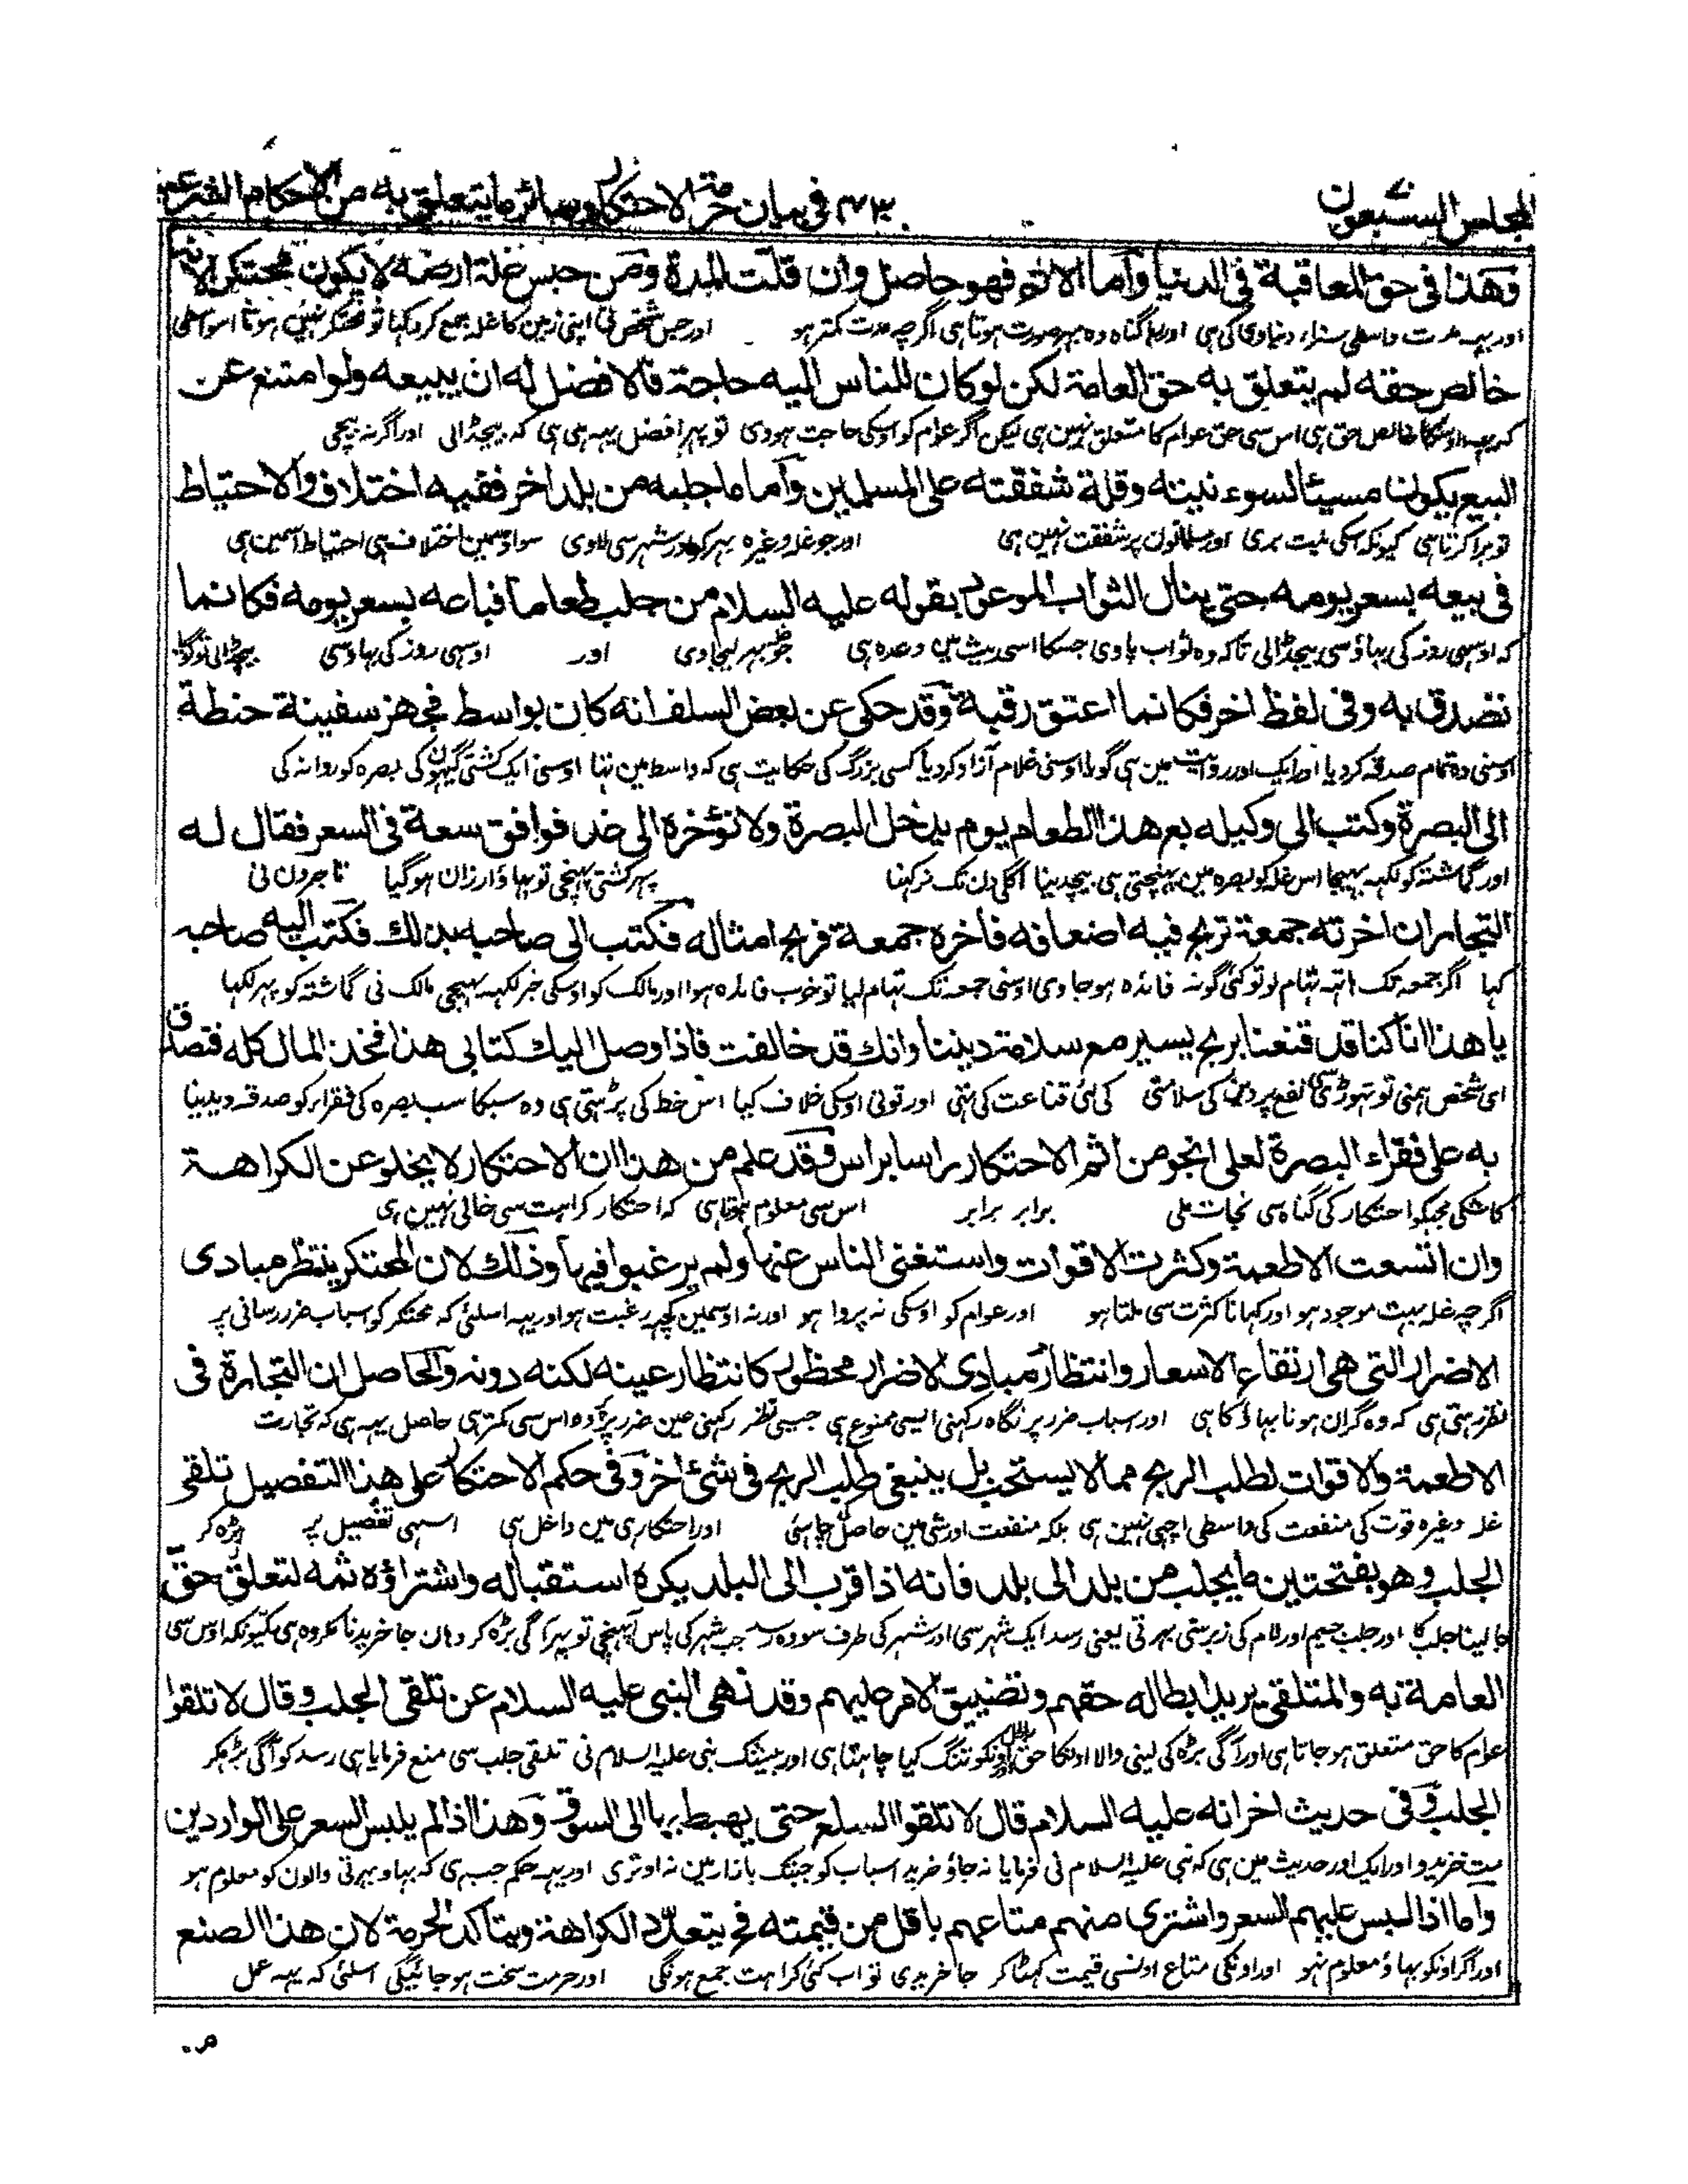 المجلس السبعون ٤٧٣ فى بيان حرمة الاحتكار وسائر ما يتعلق به من الاحكام الشرعية
وهذا فى حق المعاقبة فى الدنيا وأما الاثم فهو حاصل وان قلت المدة ومن حبس غلة ارضه لا يكون محتكرا لانه
اور یہہ مدت واسطی سزاء دنیاوی کی ہی اور رہا گناہ وہ بہرصورت ہوتا ہی اگرچہ مدت کمتر ہو اور جس شخص نی اپنی زمین کا غلہ جمع کر رکہا تو محتکر نہیں ہوتا اسواسطی
خالص حقه لم يتعلق به حق العامة لكن لو كان للناس اليه حاجة فالافضل له ان يبيعه ولو امتنع عن
کہ یہہ اوسکا خالص حق ہی اس سی حق عوام کا متعلق نہین ہی لیکن اگر عوام کو اوسکی حاجت ہووی تو پہر افضل یہہ ہی ہی کہ بیچڈالی اور اگر نہ بیچی
البيع يكون مسيئا لسوء نيته وقلة شفقته على المسلمين وأما ما جلبه من بلد اخر ففيه اختلاف والاحتياط
تو برا کرتا ہی کیونکہ اسکی نیت بری اور مسلمانون پر شفقت نہین ہی اور جو غلہ وغیرہ بہر کر اور شہر سی لاوی سو اوسمین اختلاف ہی احتیاط اسمین ہی
فى بيعه بسعر يومه حتى ينال الثواب الموعود بقوله عليه السلام من جلب طعاما فباعه بسعر يومه فكانما
کہ اوسی روز کی بہاؤ سی بیچڈالی تاکہ وہ ثواب پاوی جسکا اس حدیث مین وعدہ ہی جو بہر لیجاوی اور اوسی روز کی بہاوسی بیچڈالی تو گویا
تصدق به وفى لفظ اخر فكانما اعتق رقبة وقد حكى عن بعض السلف انه كان بواسط فجهز سفينة حنطة
اوسنی وہ تمام صدقہ کردیا اور ایک اور روایت مین ہی گویا اوسنی غلام آزاد کردیا کسی بزرگ کی حکایت ہی کہ واسط مین تہا اوسنی ایک کشتی گیہون کی بصرہ کو روانہ کی
الى البصرة وكتب الى وكيله بع هذا الطعام يوم يدخل البصرة ولا تؤخره الى غد فوافق سعة فى السعر فقال له
اور گماشتہ کو لکہہ بہیجا اس غلہ کو بصرہ مین پہنچتی ہی بیچدینا اگلی دن تک نرکہنا پہر کشتی پہنچی تو بہاؤ ارزان ہوگیا تاجرون نی
التجار ان اخرته جمعة تربح فيه اضعافه فأخره جمعة فربح امثاله فكتب الى صاحبه بذلك فكتب اليه صاحبه
کہا اگر جمعہ تک اتہہ تہام لو تو کئی گونہ فائدہ ہوجاوی اوسنی جمعہ تک تہام لیا تو خوب فائدہ ہوا اور مالک کو اوسکی خبر لکہہ بہیجی مالک نی گماشتہ کو پہر لکہا
يا هذا انا كنا قد قنعنا بربح يسير مع سلامة ديننا وانك قد خالفت فاذا وصل اليك كتابى هذا فخذ المال كله فتصدق
ای شخص ہمنی تو تہوڑی سی نفع پر دین کی سلامتی کی لئی قناعت کی تہی اور تونی اوسکی خلاف کیا اس خط کی پڑہتی ہی وہ سبکا سب بصرہ کی فقراء کو صدقہ دیدینا
به على فقراء البصرة لعلى انجو من اثم الاحتكار راسا براس وقد علم من هذا ان الاحتكار لا يخلو عن الكراهة
کاشکی مجہکو احتکار کی گناہ سی نجات ملی برابر برابر اس سی معلوم ہوتا ہی کہ احتکار کراہت سی خالی نہین ہی
وان اتسعت الاطعمة وكثرت الاقوات واستغنى الناس عنها ولم يرغبوا فيها وذلك لان المحتكر ينتظر مبادى
اگرچہ غلہ بہت موجود ہو اور کہانا کثرت سی ملتا ہو اور عوام کو اوسکی نہ پروا ہو اور نہ اوسمین کچہہ رغبت ہو اور یہہ اسلئی کہ محتکر کو اسباب ضرر رسانی پر
الاضرار التى هى ارتفاع الاسعار وانتظار مبادى الاضرار محظور كانتظار عينه لكنه دونه والحاصل ان التجارة فى
نظر رہتی ہی کہ وہ گران ہونا بہاؤ کا ہی اور اسباب ضرر پر نگاہ رکہنی ایسی ممنوع ہی جیسی نظر رکہنی عین ضرر پر گو وہ اس سی کمتر ہی حاصل یہہ ہی کہ تجارت
الاطعمة والاقوات لطلب الربح مما لا يستحب بل ينبغى طلب الربح فى شئ اخر وفى حكم الاحتكار على هذا التفصيل تلقى
غلہ وغیرہ قوت کی منفعت کی واسطی اچہی نہین ہی بلکہ منفعت اور شی مین حاصل چاہئی اور احتکار ہی مین داخل ہی اسہی تفصیل پر بڑہ کر
الجلب وهو بفتحتين ما يجلب من بلد الى بلد فانه اذا قرب الى البلد يكره استقباله واشتراؤه ثمه لتعلق حق
جا لینا جلب کا اور جلب جیم اور لام کی زبر سی بہرتی یعنی رسد ایک شہر سی اور شہر کی طرف سو وہ رسد جب شہر کی پاس آپہنچی تو پہر آگی بڑہ کر وہان جا خریدنا مکروہ ہی کیونکہ اوس سی
العامة به والمتلقى يريد ابطاله حقهم وتضييق الامر عليهم وقد نهى النبى عليه السلام عن تلقى الجلب وقال لا تلقوا
عوام کا حق متعلق ہوجاتا ہی اور آگی بڑہ کی لینی والا اونکا حق اور اونکو تنگ کیا چاہتا ہی اور بیشک نبی علیہ السلام نی تلقی جلب سی منع فرمایا ہی رسد کو آگی بڑہکر
الجلب وفى حديث اخر انه عليه السلام قال لا تلقوا السلع حتى يهبط بها الى السوق وهذا اذا لم يلبس السعر على الواردين
مت خریدو اور ایک اور حدیث مین ہی کہ نبی علیہ السلام نی فرمایا نہ جاؤ خرید اسباب کو جبتک بازار مین نہ اوتری اور یہہ حکم جب ہی کہ بہاو بہرتی والون کو معلوم ہو
واما اذا لبس عليهم السعر واشترى منهم متاعهم باقل من قيمته فح يتعدد الكراهة ويتاكد الحرمة لان هذا الصنع
اور اگر اونکو بہاؤ معلوم نہو اور اونکی متاع اونسی قیمت گہٹا کر جا خریدی تو اب کئی کراہت جمع ہونگی اور حرمت سخت ہوجائیگی اسلئی کہ یہہ عمل